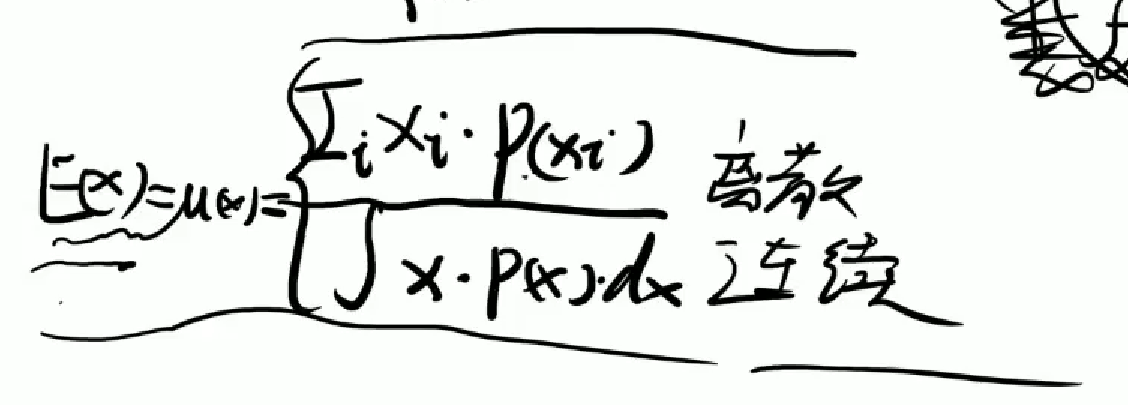 E(x)=μ(x)=
Σᵢ xᵢ · p(xᵢ) 离散
∫ x · p(x) · dx 连续